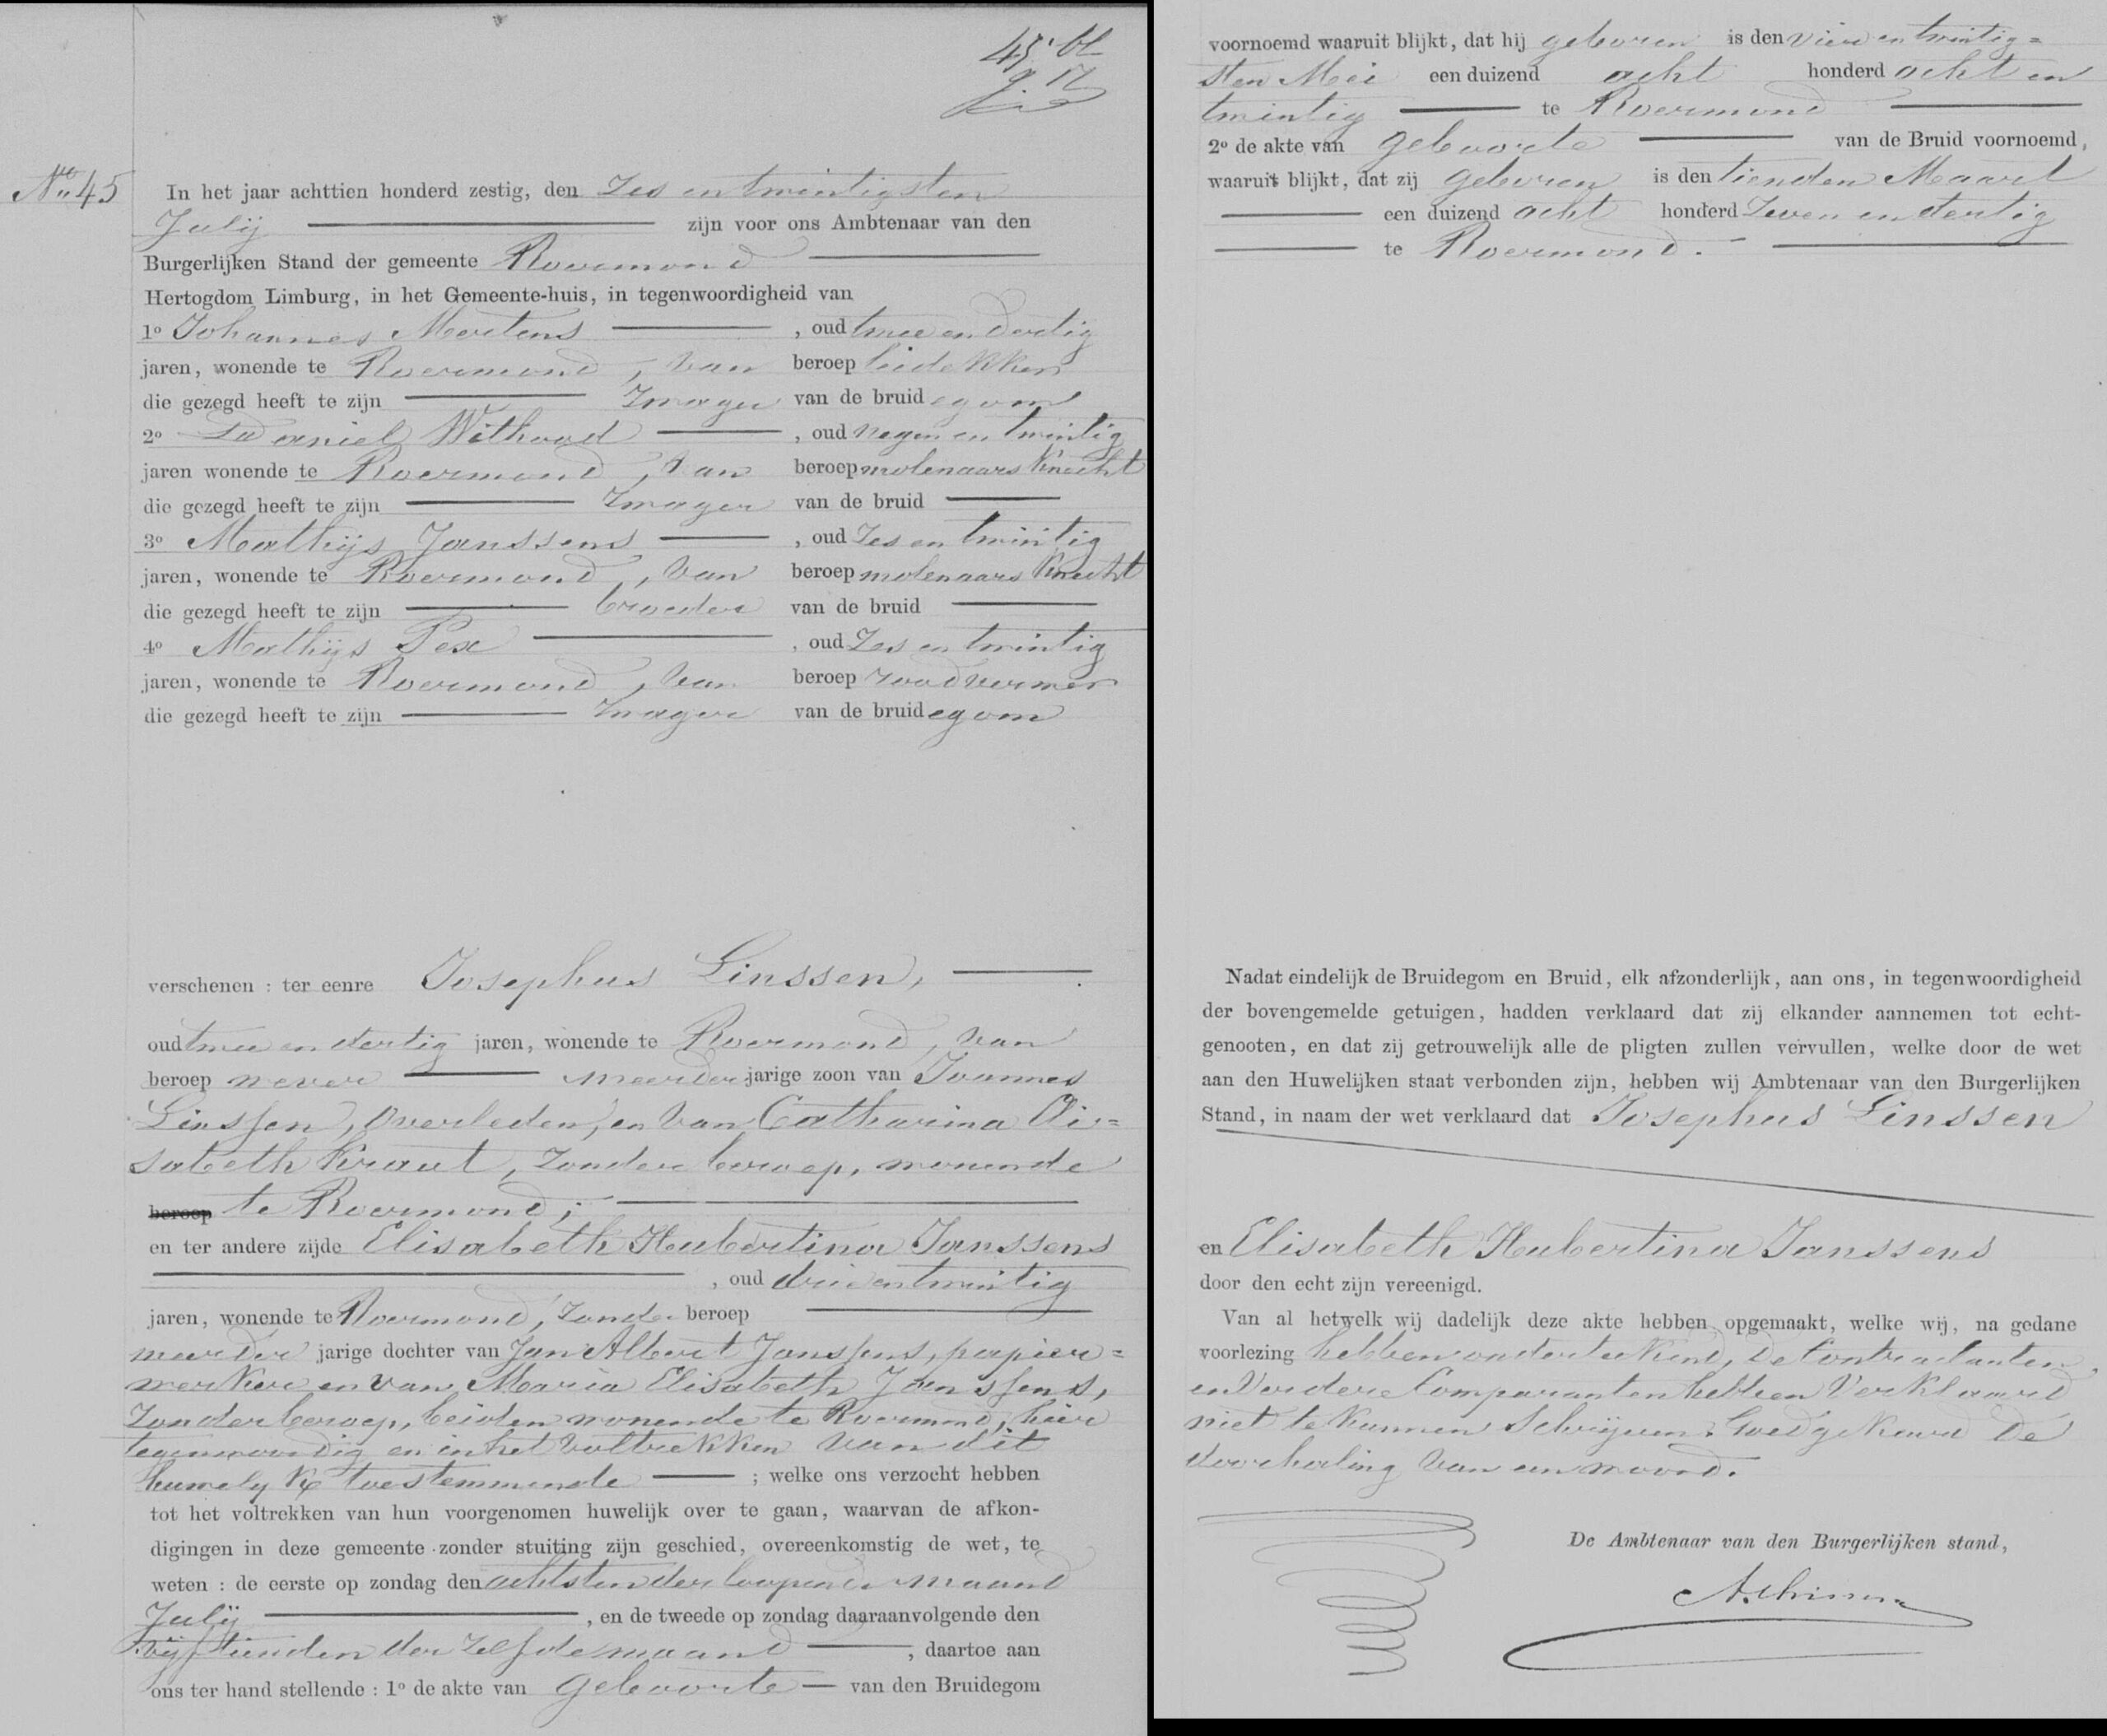 45e bl
No 45
In het jaar achttien honderd zestig, den Zes en twintigsten
Julij zijn voor ons Ambtenaar van den
Burgerlijken Stand der gemeente Roermond
Hertogdom Limburg, in het Gemeente-huis, in tegenwoordigheid van
1o Johannes Mertens , oud twee en dertig
jaren, wonende te Roermond, van beroep leidekker
die gezegd heeft te zijn Zwager van de bruidegom
2o Daniel Withood , oud negen en twintig
jaren wonende te Roermond, van beroep molenaars knecht
die gezegd heeft te zijn Zwager van de bruid
3o Mathijs Janssens , oud Zes en twintig
jaren, wonende te Roermond, van beroep molenaars knecht
die gezegd heeft te zijn broeder van de bruid
4o Mathijs Pex , oud Zes en twintig
jaren, wonende te Roermond, van beroep roodverwer
die gezegd heeft te zijn Zwager van de bruidegom
verschenen : ter eenre Josephus Linssen,
oud twee en dertig jaren, wonende te Roermond, van
beroep wever meerder jarige zoon van Joannes
Linssen, overleden, en van Catharina Eli=
sabeth Kraut, Zonder beroep, wonende
beroep te Roermond;
en ter andere zijde Elisabeth Hubertina Janssens
, oud drie en twintig
jaren, wonende te Roermond, Zonder beroep
meerder jarige dochter van Jan Albert Janssens, papier=
werker en van Maria Elisabeth Janssens,
Zonder beroep, beiden wonende te Roermond, hier
tegenwoordig en in het voltrekken van dit
huwelyk toestemmende ; welke ons verzocht hebben
tot het voltrekken van hun voorgenomen huwelijk over te gaan, waarvan de afkon-
digingen in deze gemeente zonder stuiting zijn geschied, overeenkomstig de wet, te
weten : de eerste op zondag den achtsten der loopende maand
Julij , en de tweede op zondag daaraanvolgende den
vijftienden der zelfde maand , daartoe aan
ons ter hand stellende : 1o de akte van geboorte van den Bruidegom
voornoemd waaruit blijkt, dat hij geboren is den vier en twintig=
sten Mei een duizend acht honderd acht en
twintig te Roermond
2o de akte van geboorte van de Bruid voornoemd,
waaruit blijkt, dat zij geboren is den tienden Maart
een duizend acht honderd Zeven en dertig
te Roermond.
Nadat eindelijk de Bruidegom en Bruid, elk afzonderlijk, aan ons, in tegenwoordigheid
der bovengemelde getuigen, hadden verklaard dat zij elkander aannemen tot echt-
genooten, en dat zij getrouwelijk alle de pligten zullen vervullen, welke door de wet
aan den Huwelijken staat verbonden zijn, hebben wij Ambtenaar van den Burgerlijken
Stand, in naam der wet verklaard dat Josephus Linssen
en Elisabeth Hubertina Janssens
door den echt zijn vereenigd.
Van al hetwelk wij dadelijk deze akte hebben opgemaakt, welke wij, na gedane
voorlezing hebben onderteekend, de Contractanten
en verdere Comparanten hebben verklaard
niet te kunnen schrijven. Goedgekeurd de
doorhaling van een woord.
De Ambtenaar van den Burgerlijken stand,